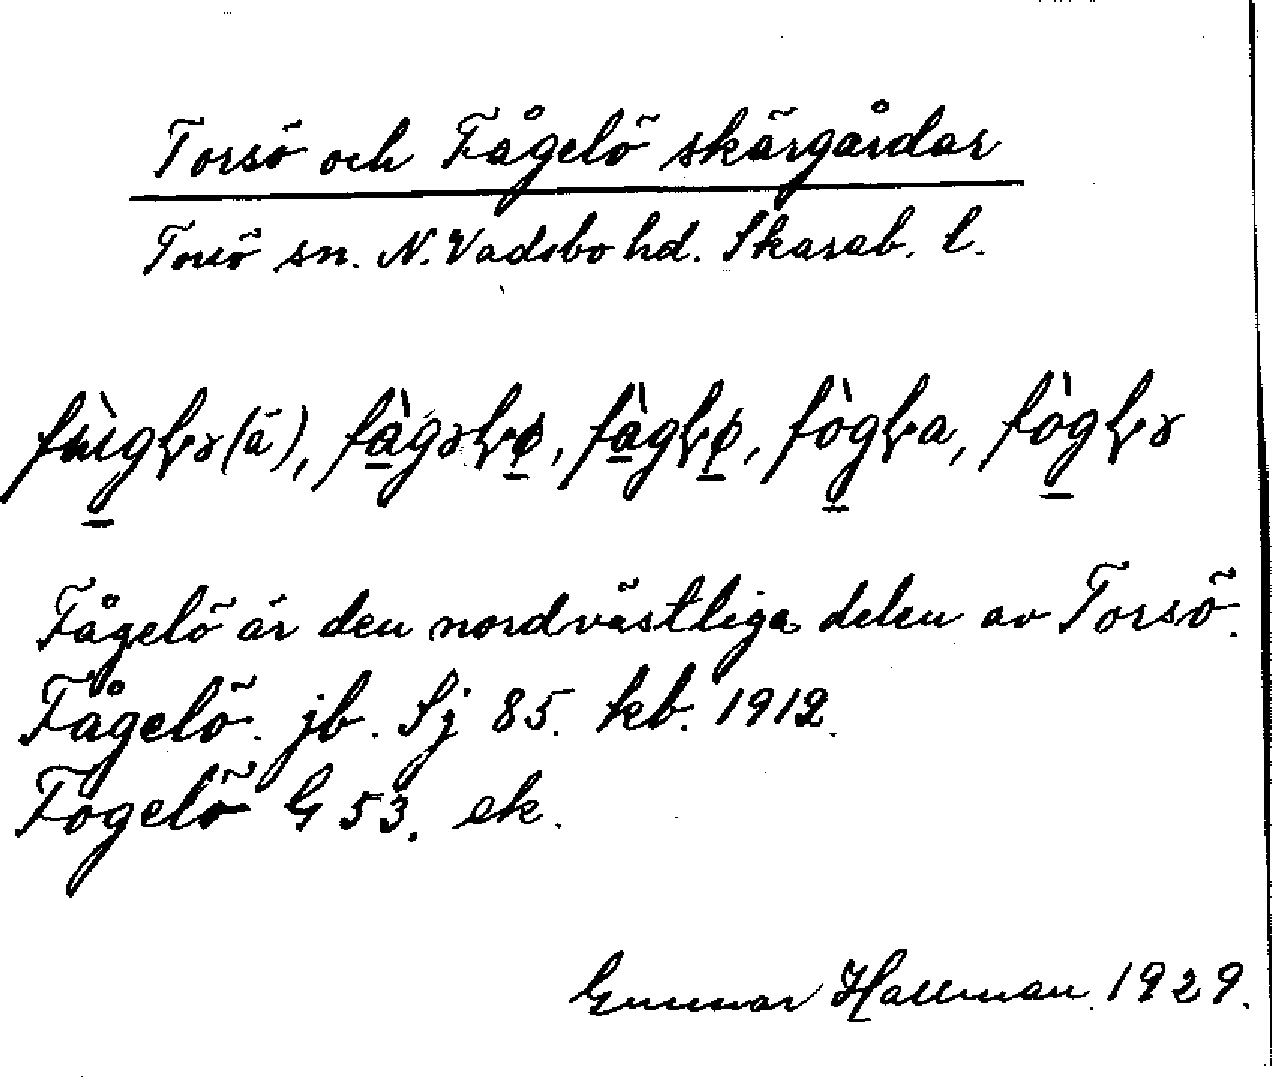 Torsö och Fågelö skärgårdar
Torsö sn. N. Vadsbo hd. Skarab. l.
Fågelö är den nordvästliga delen av Torsö.
Fågelö. jb. Sj 85. kb. 1912.
Fogelö G 53. ek.
Gunnar Hallman. 1929.